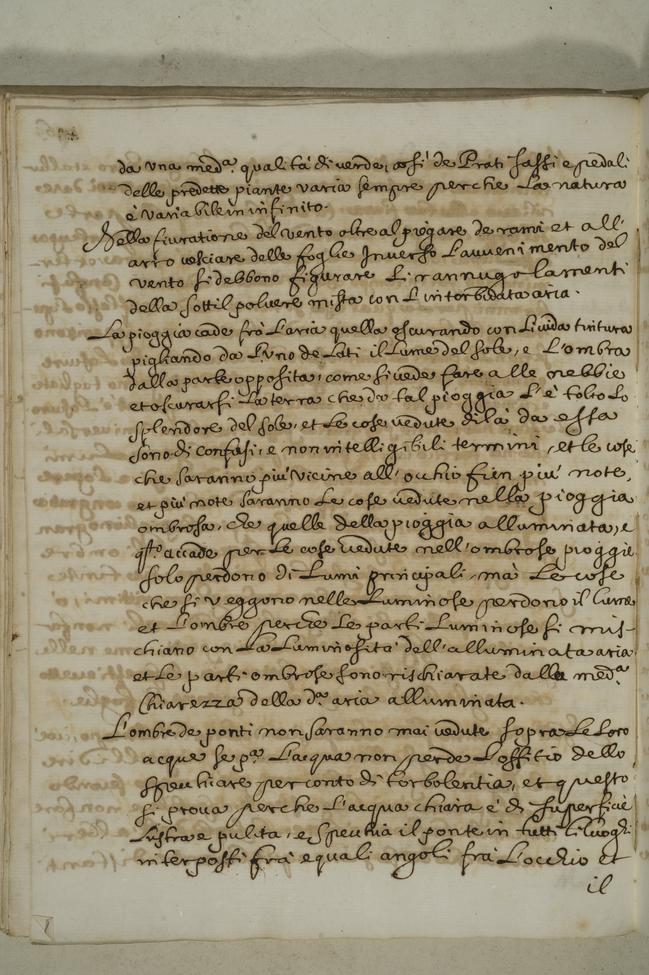 da una med.ª qualità di verde, così de Prati sassi e pedali
delle predette piante varia sempre perche La natura
è variabile in infinito.
Nella fiuratione del vento oltre al piegare de rami et all'
arrovesciare delle foglie Inverso L'avvenimento del
vento si debbono figurare Li rannugolamenti
della sottil polvere mista con L'intorbidata aria.
La pioggia cade fra L'aria quella oscurando con Livida tintura
pigliando da L'uno de Lati il Lume del sole, e L'ombra
dalla parte opposita, come si vede fare alle nebbie
et oscurarsi La terra che da tal pioggia L'è tolto Lo
splendore del sole, et Le cose vedute di là da essa
sono di confusi, e non intelligibili termini, et le cose
che saranno più vicine all'occhio fien più note,
et più note saranno Le cose vedute nella pioggia
ombrosa, che quelle della pioggia alluminata, e
q.to accade perche Le cose vedute nell'ombrose pioggie
solo perdono di Lumi principali, mà Le cose
che si veggono nelle Luminose perdono il Lume
et L'ombre perche Le parti Luminose si mis-
chiano con La Luminosità dell'alluminata aria
et Le parti ombrose sono rischiarate dalla med.ª
Chiarezza della d.ª aria alluminata.
L'ombre de ponti non saranno mai vedute sopra Le Loro
acque se p.ª L'acqua non perde L'offitio dello
specchiare per conto di torbolentia, et questo
si prova perche L'acqua chiara è di superficie
Lustra e pulita, e specchia il ponte in tutti Li Luoghi
interposti frà equali angoli frà L'occhio et
il